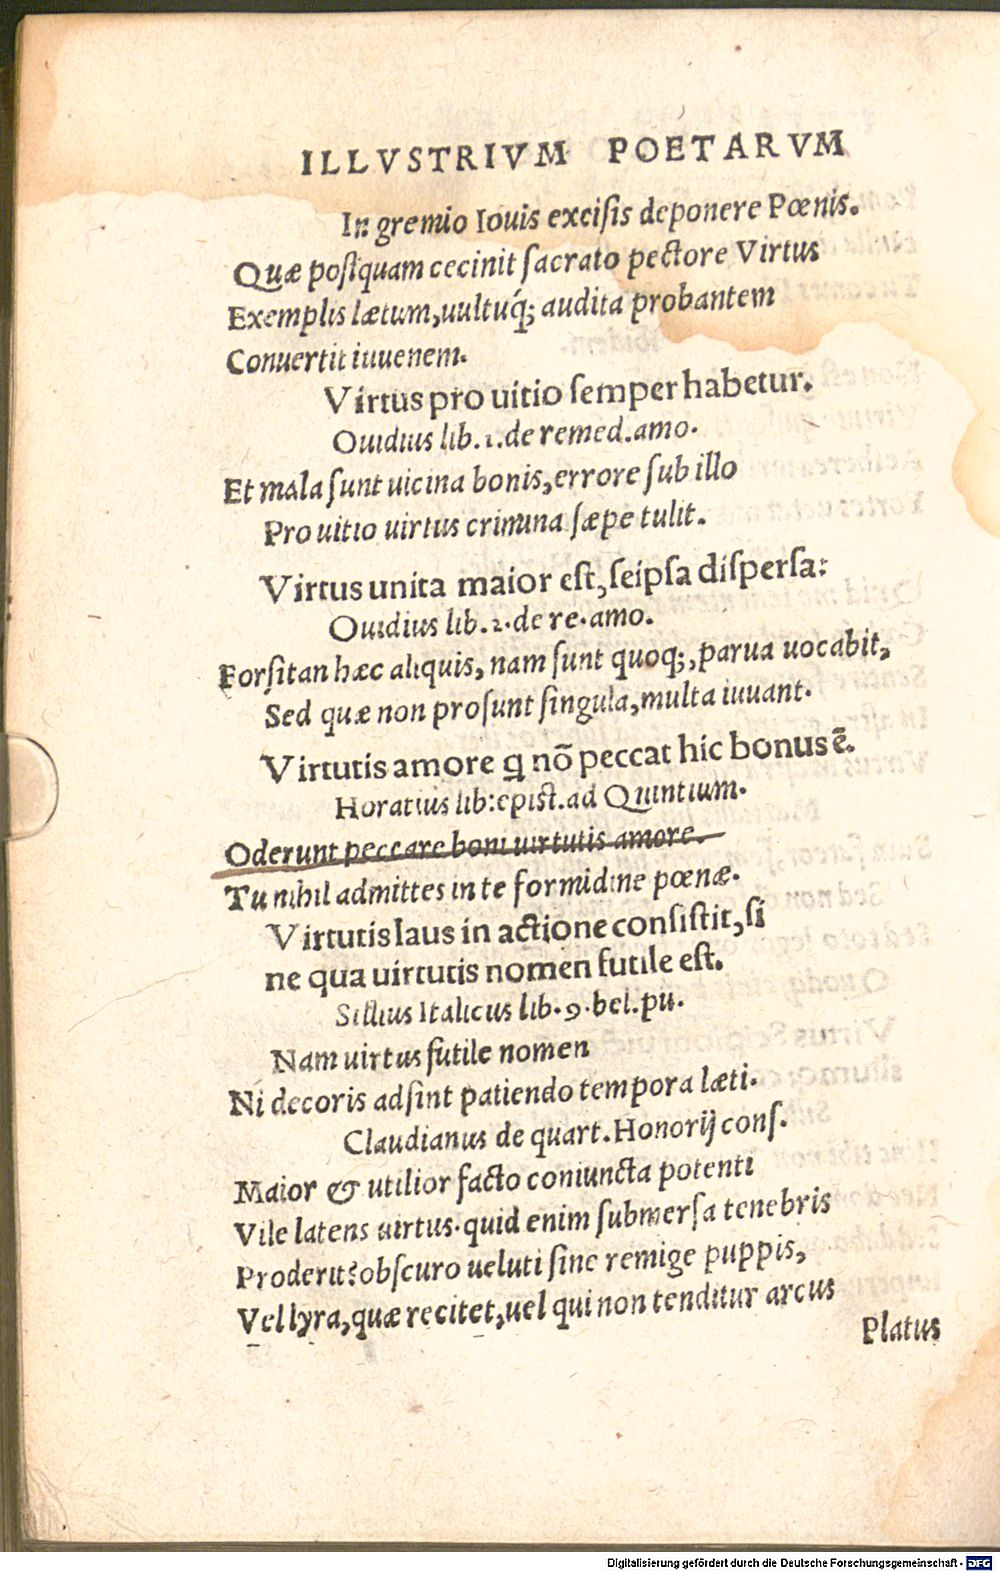 ILLVSTRIVM POETARVM
In gremio Iouis excisis deponere Pœnis.
Quæ postquam cecinit sacrato pectore Virtus
Exemplis lætum, uultuq́; audita probantem
Conuertit iuuenem.
Virtus pro uitio semper habetur.
Ouidius lib. 1. de remed. amo.
Et mala sunt uicina bonis, errore sub illo
Pro uitio uirtus crimina sæpe tulit.
Virtus unita maior est, seipsa dispersa:
Ouidius lib. 2. de re. amo.
Forsitan hæc aliquis, nam sunt quoq;, parua uocabit,
Sed quæ non prosunt singula, multa iuuant.
Virtutis amore q nõ peccat hic bonus ẽ.
Horatius lib: epist. ad Quintium.
Oderunt peccare boni uirtutis amore.
Tu nihil admittes in te formidine pœnæ.
Virtutis laus in actione consistit, si
ne qua uirtutis nomen futile est.
Sillius Italicus lib. 9. bel. pu.
Nam uirtus futile nomen
Ni decoris adsint patiendo tempora læti.
Claudianus de quart. Honorij cons.
Maior & utilior facto coniuncta potenti
Vile latens uirtus. quid enim submersa tenebris
Proderit? obscuro ueluti sine remige puppis,
Vel lyra, quæ recitet, uel qui non tenditur arcus
Platus
Digitalisierung gefördert durch die Deutsche Forschungsgemeinschaft - DFG